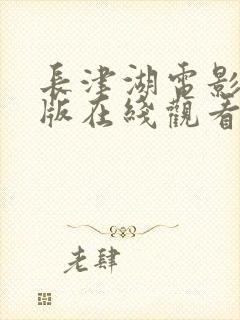 長津湖電影
版在綫觀看
老肆